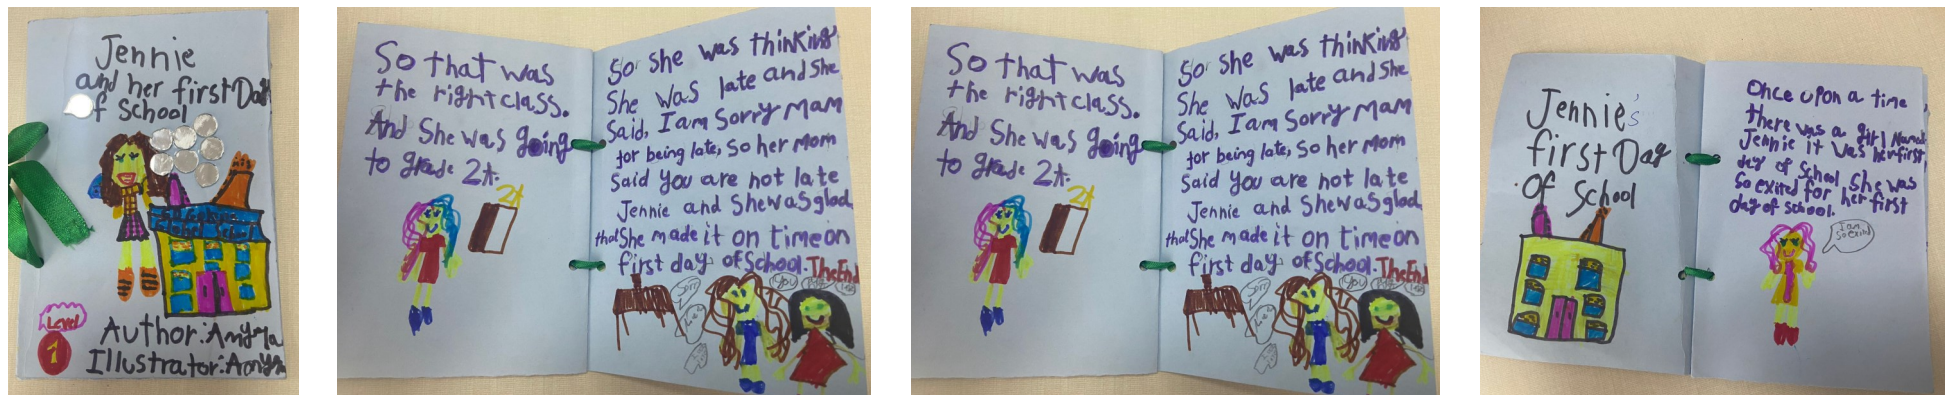 Jennie
and her first Day
f School
Level
1
Author: Amyra
Illustrator:
So that was
the right class.
And She was going
to grade 2A.
2A
So she was thinking
She was late and She
Said, I am Sorry Mam
for being late, So her Mom
Said You are not late
Jennie and She was glad
that She made it on time on
first day of School. The End
Sorry
You
So that was
the right class.
And She was going
to grade 2A.
2A
So she was thinking
She was late and She
Said, I am Sorry Mam
for being late, So her Mom
Said You are not late
Jennie and She was glad
that She made it on time on
first day of School. The End
Sorry
You
Jennie's
first Day
of School
Once upon a time
there was a girl Named
Jennie it was her first
day of School She was
So exited for her first
day of School.
I am
So exited